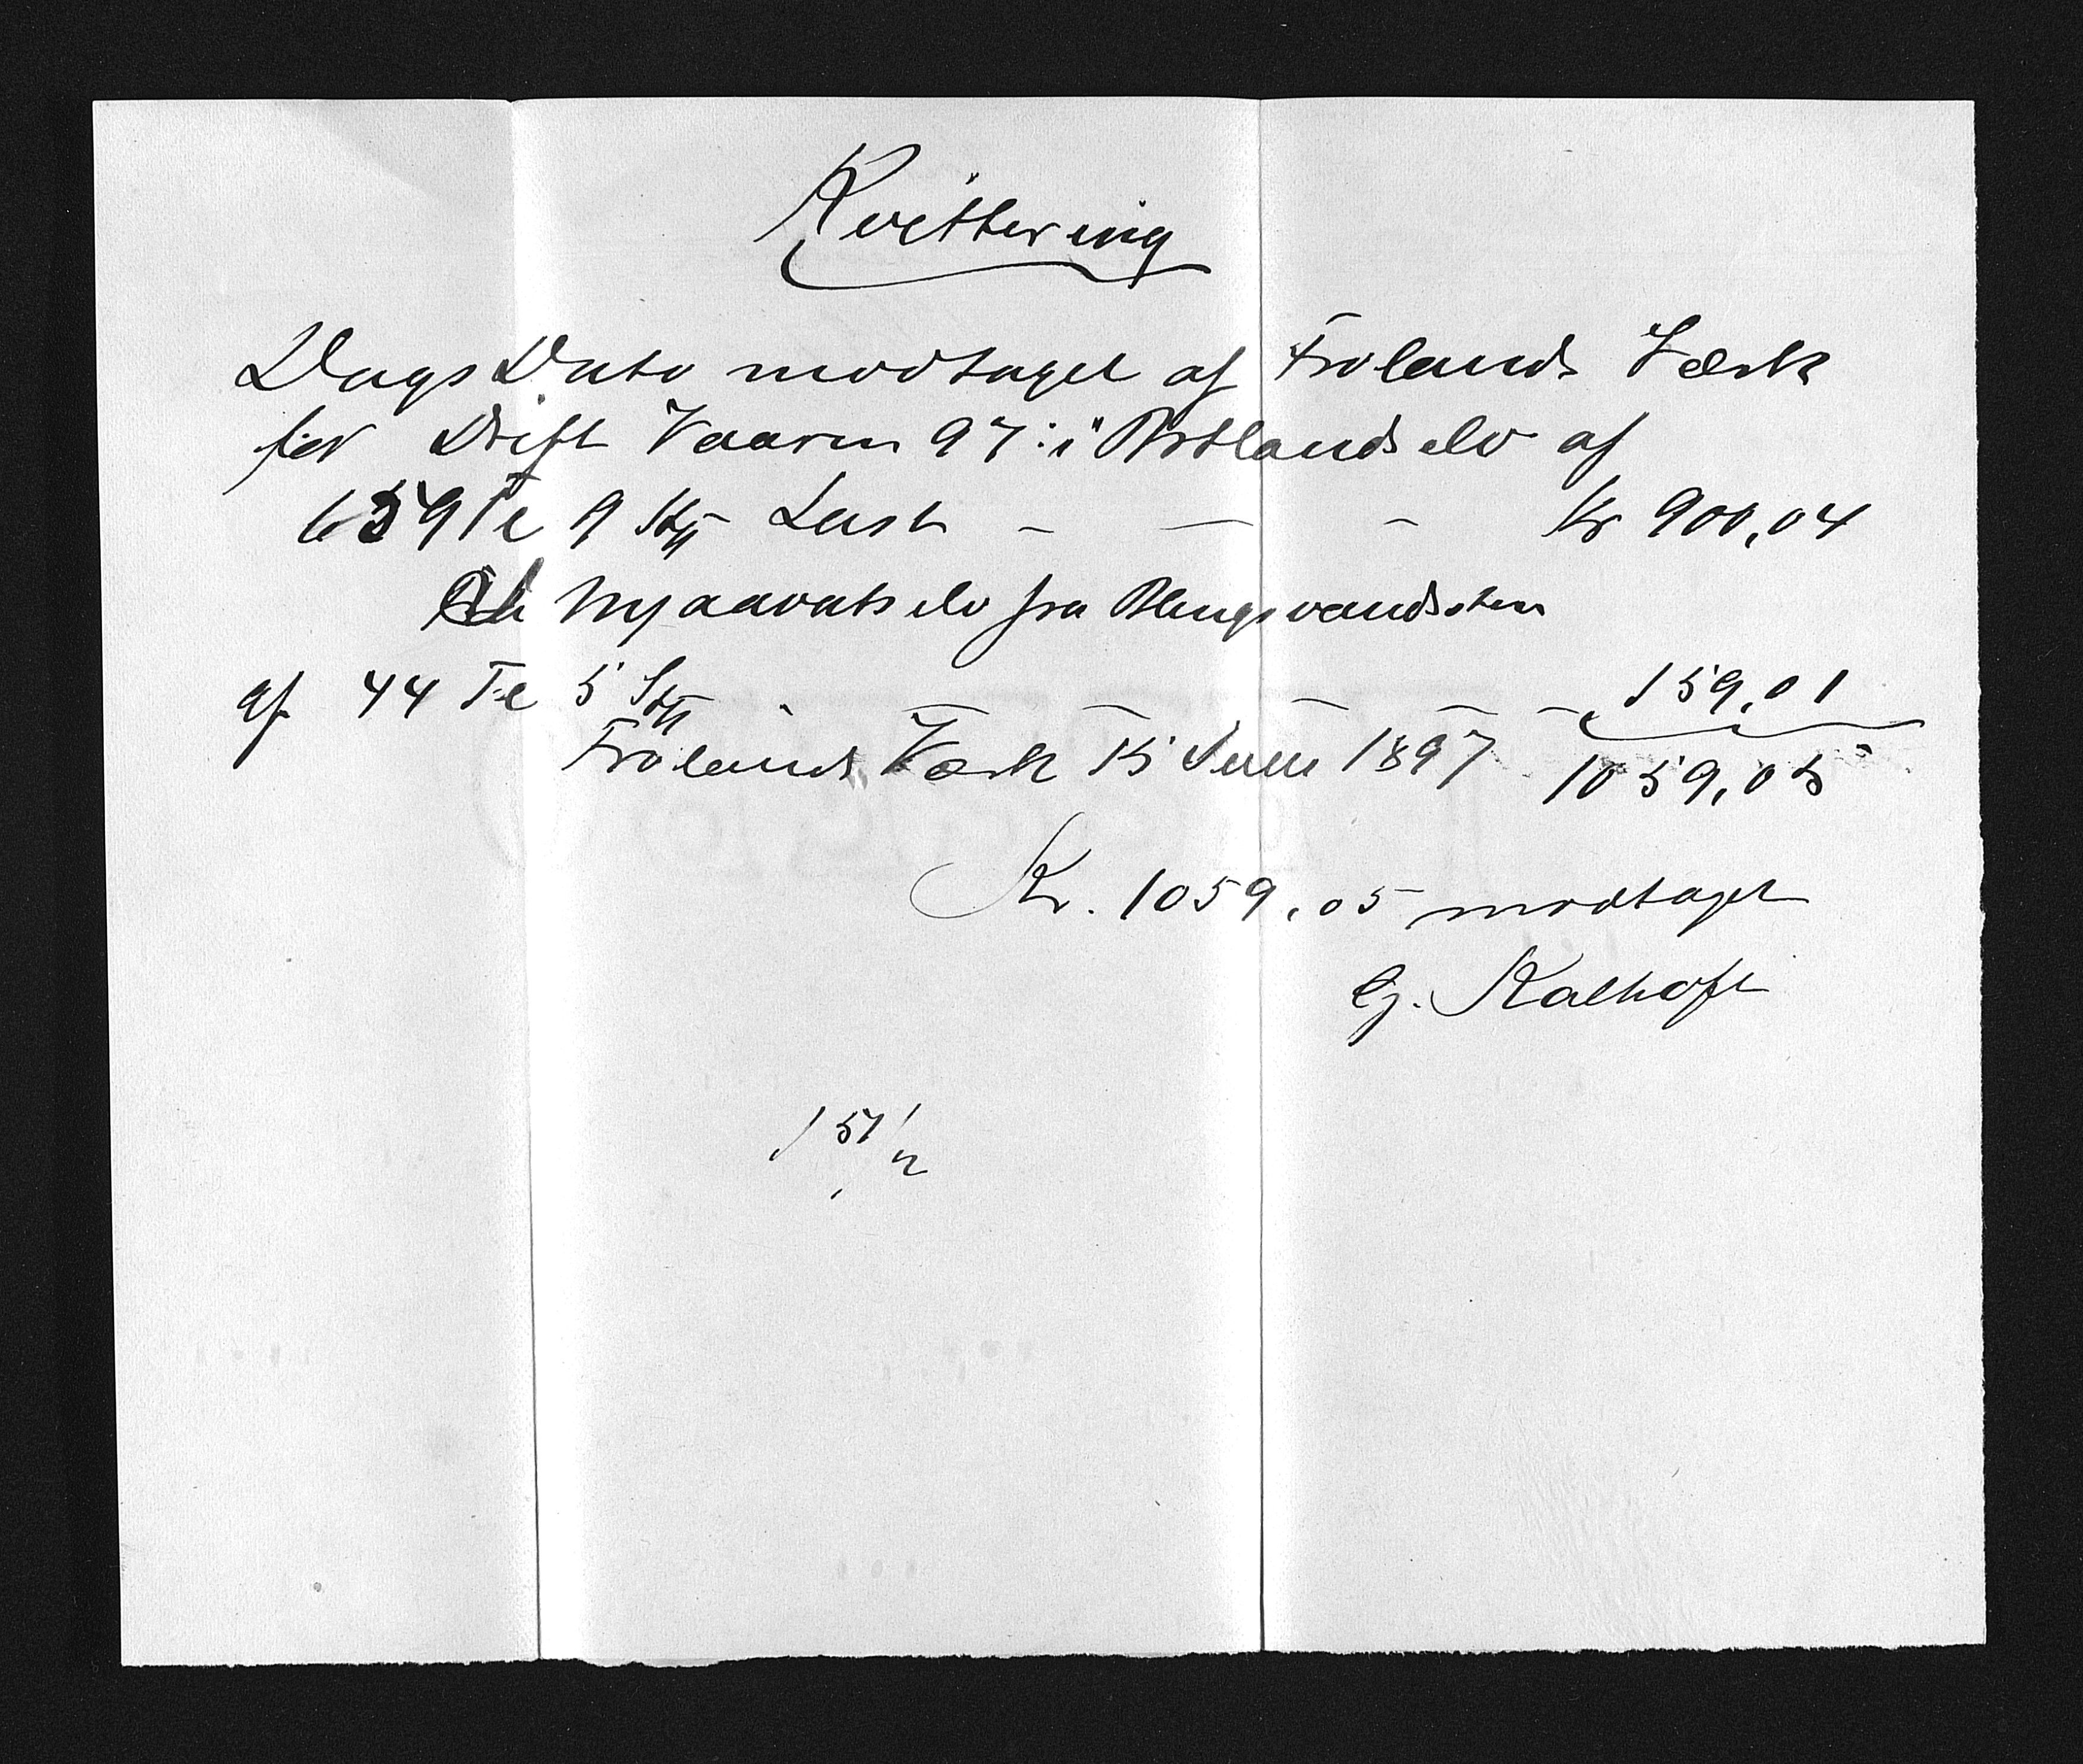 Kvittering
Dags Dato modtaget af Frolands Værk
for Drift Vaaren 97: i Rotlands elv af
659 Te 9 Stk Last - - - Kr 900,04
Nyaavats elv fra
af 44 Te 5 Stk - - - - - - 159,01
Frolands Værk 15 Juni 1897 1059,05
Kr. 1059,05 modtaget
G. Kalhoft
151/2